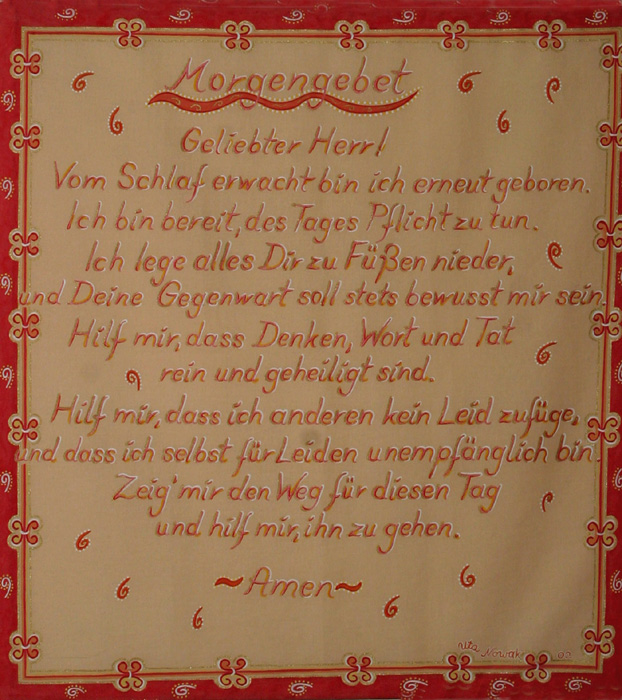 Morgengebet
Geliebter Herr!
Vom Schlaf erwacht bin ich erneut geboren.
Ich bin bereit, des Tages Pflicht zu tun.
Ich lege alles Dir zu Füßen nieder,
und Deine Gegenwart soll stets bewusst mir sein.
Hilf mir, dass Denken, Wort und Tat
rein und geheiligt sind.
Hilf mir, dass ich anderen kein Leid zufüge,
und dass ich selbst für Leiden unempfänglich bin.
Zeig' mir den Weg für diesen Tag
und hilf mir, ihn zu gehen.
~Amen~